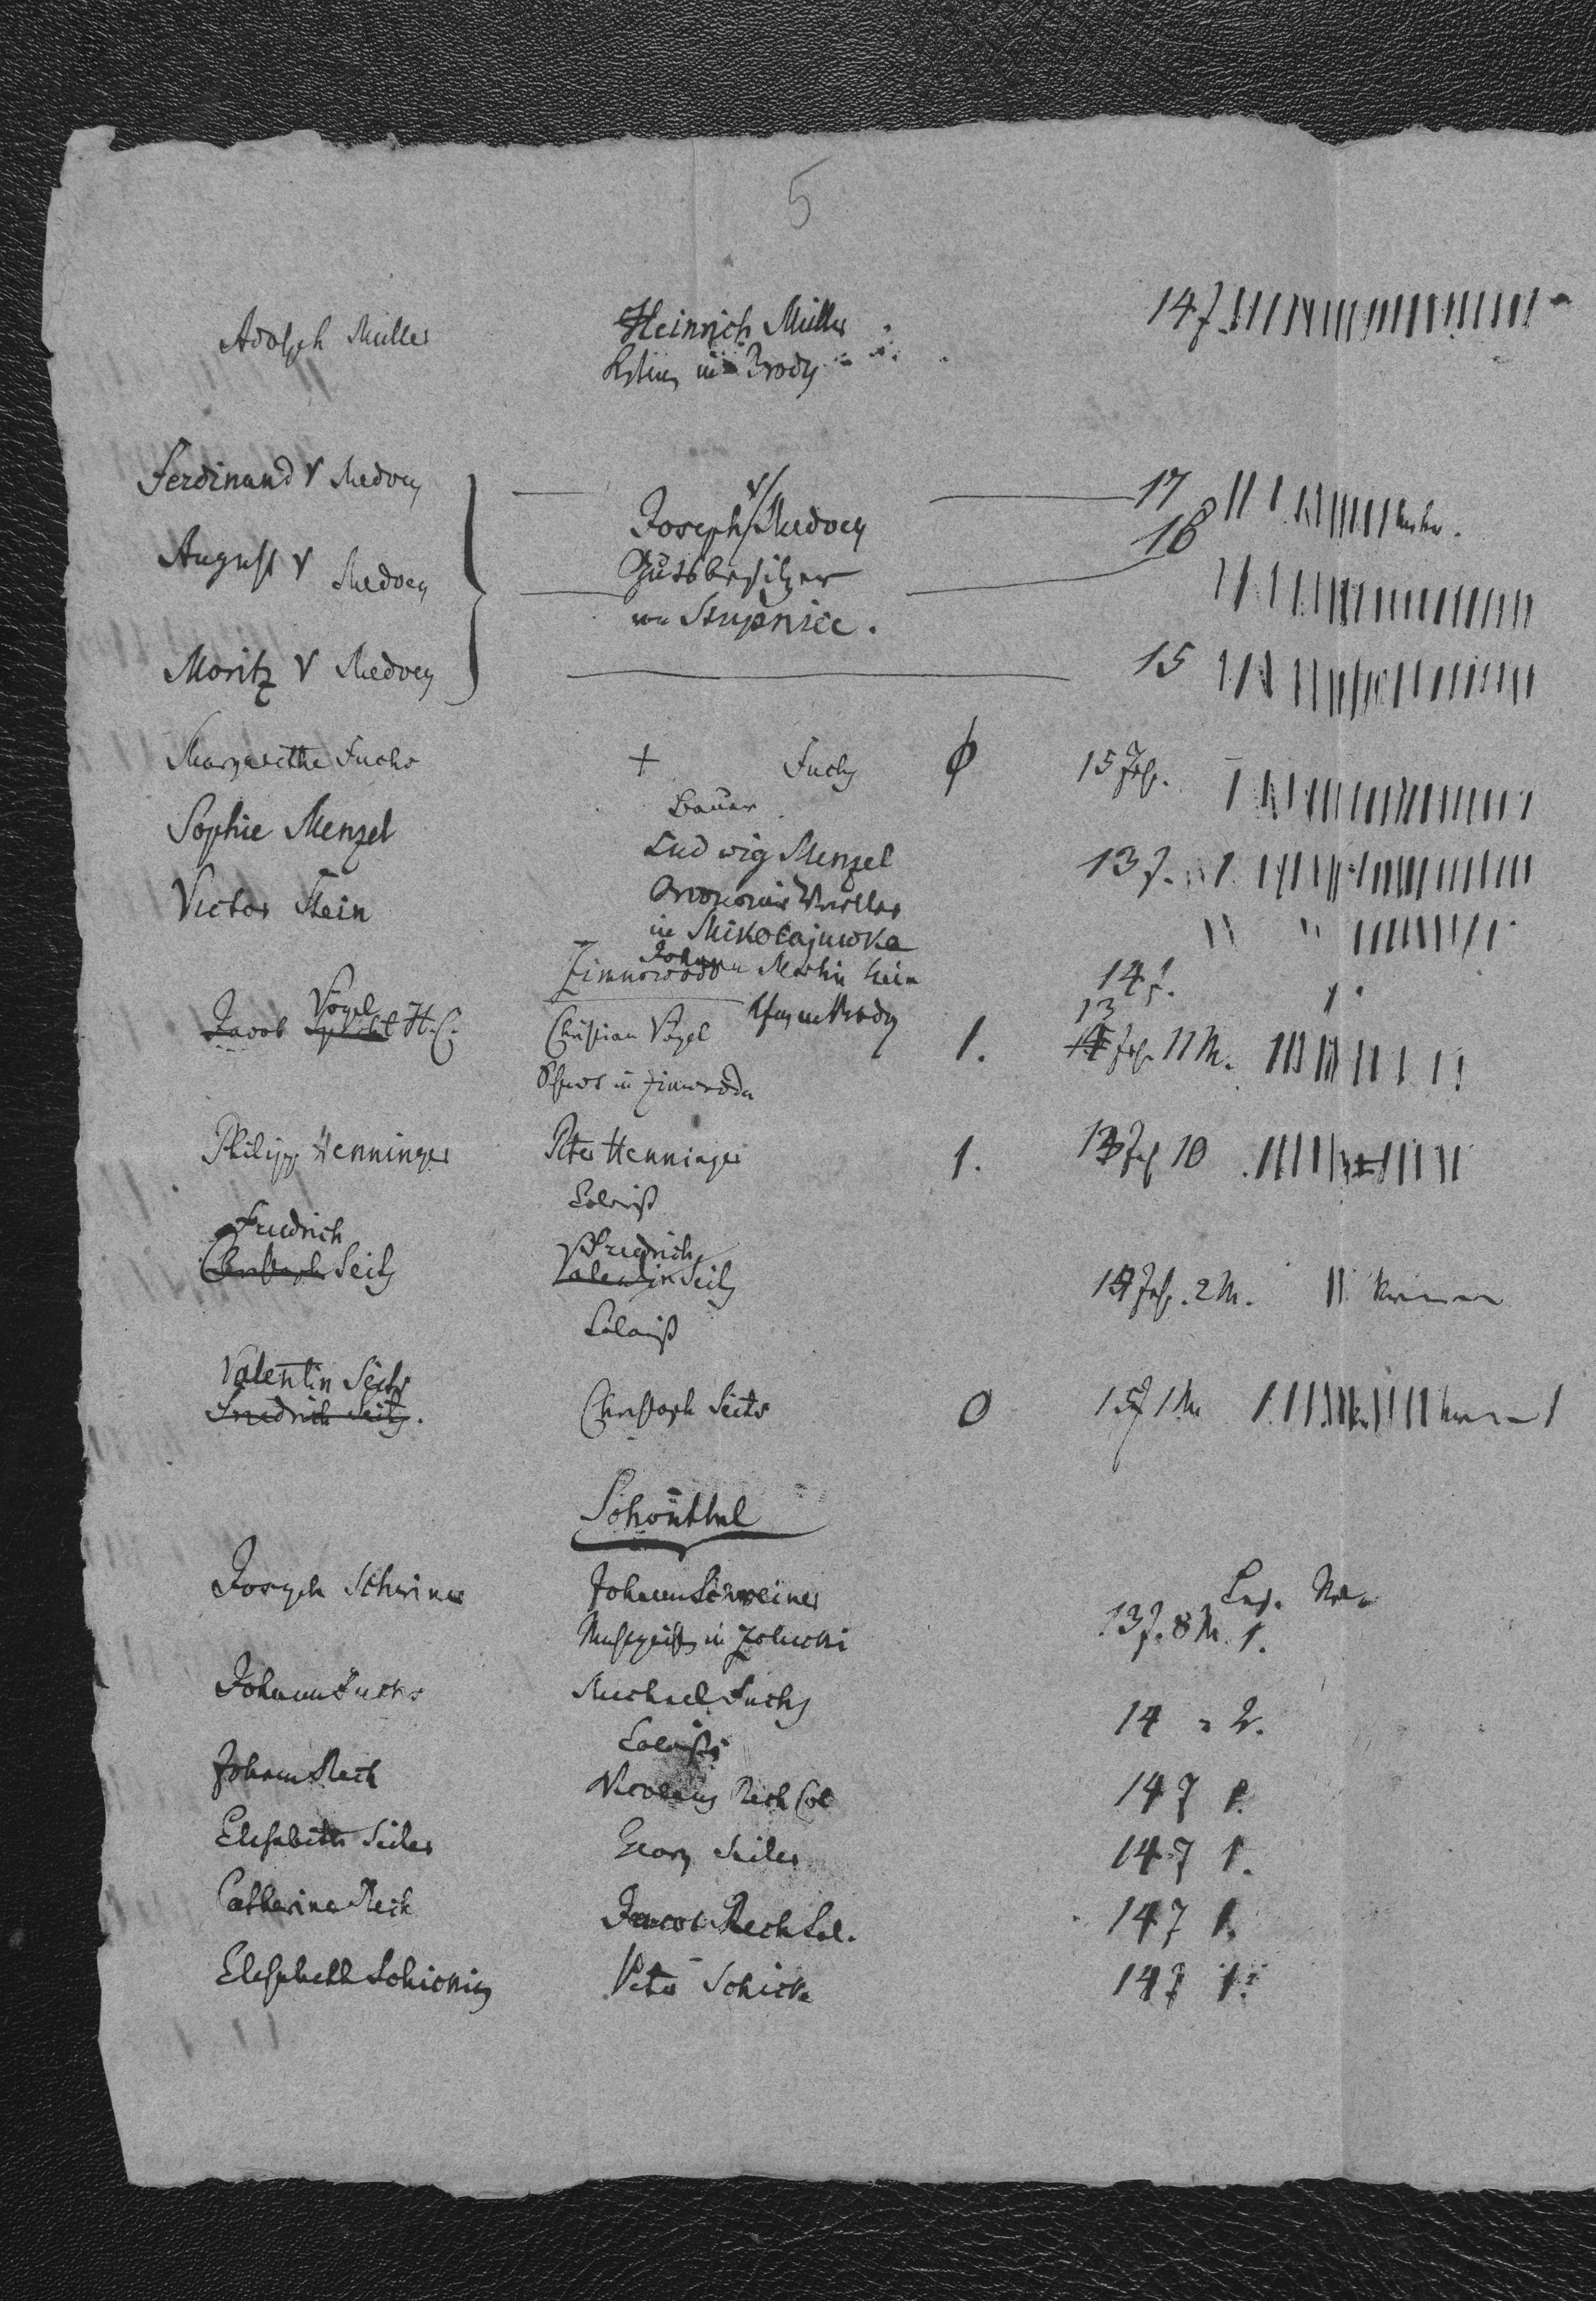 5
Adolph Müller Heinrich Müller 14 J
in Brody
Ferdinand v Medvey 17
Joseph v Medvey
August v Medvey Gutsbesitzer 16
von Stupnice.
Moritz v Medvey 15
Margarethe Fuchs + Fuchs 15 Jah.
Bauer
Sophie Menzel Ludwig Menzel 13 J. 1
Victor Stein
in Mikolajuwka
Zimnowoda Johann Martin Stein 14 J.
in Brody 13
Jacob Vogel H.C. Christian Vogel 1. Jah. 11 M.
in Zimnowoda
Philipp Henninger Peter Henninger 1. 13 Jah 10
Colonist
Friedrich Friedrich
Christoph Seitz Valentin Seitz 14 Jah. 2 M.
Colonist
Valentin Seitz
Friedrich Seitz. Christoph Seitz 0 15 J 1 M
Schönthal
Joseph Schreiner Johann Schreiner
in 13 J. 8 M. 1.
Johann Fuchs Michael Fuchs 14 " 2.
Colonist
Johann Rech Nicolaus Rech Col 14 J 1.
Elisabeth Seiler Georg Seiler 14 J 1.
Catherine Rech Jacob Rech Col. 14 J 1.
Elisabeth Schickin Peter Schick 14 J 1.